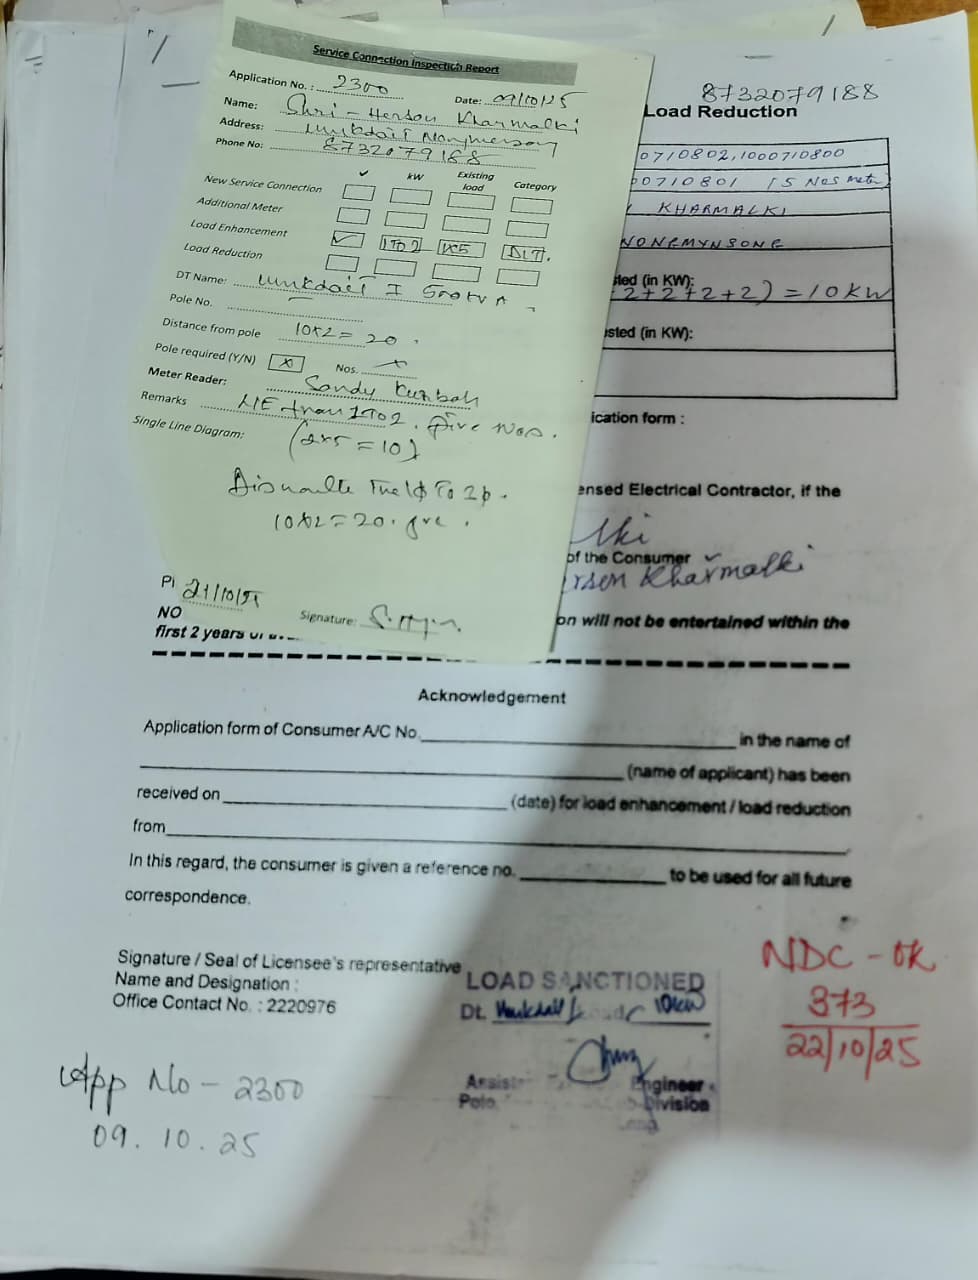 Service Connection Inspection Report
Application No. : 2300 Date: 09/10/25
Name: Shri - Herson Kharmalki
Address:
Phone No: 8732079188
✓ kW Existing load Category
New Service Connection
Additional Meter
Load Enhancement ✓ 1 TO 2 1x5 DLT.
Load Reduction
DT Name: Umkdait I 500 KVA
Pole No.
Distance from pole 10x2 = 20.
Pole required (Y/N) x Nos. x
Meter Reader: Sandy
Remarks LIE from 1 TO 2. five Nos.
Single Line Diagram: (2x5 = 10)
Dismantle the 1φ To
10x2 = 20.
21/10/25
Signature:
NO
first 2 years
8732079188
Load Reduction
0710802, 1000710800
00710801 (5 Nos Meter)
KHARMALKI
NONGMYNSONG
ted (in KW):
2+2+2+2) = 10 KW
sted (in KW):
ication form :
ensed Electrical Contractor, if the
of the Consumer
erson Kharmalki
on will not be entertained within the
Acknowledgement
Application form of Consumer A/C No. in the name of
(name of applicant) has been
received on (date) for load enhancement / load reduction
from
In this regard, the consumer is given a reference no. to be used for all future
correspondence.
Signature / Seal of Licensee's representative
Name and Designation :
Office Contact No. : 2220976
LOAD SANCTIONED
Dt. 10kW
Engineer
Division
NDC - OK
373
22/10/25
App No - 2300
09.10.25